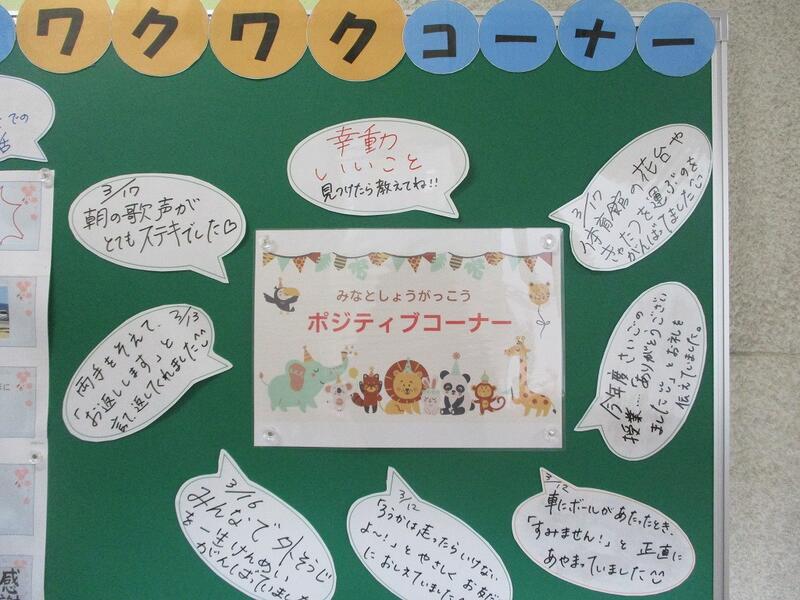 ワクワクコーナー
幸動
いいこと
見つけたら教えてね!!
3/17
朝の歌声が
とてもステキでした♡
3/17
体育館の花台や
きゃたつを運ぶのを
がんばってました
みなとしょうがっこう
ポジティブコーナー
3/13
両手をそえて、
「お返しします」と
言って、返してくれました
今年度さいごの
授業…「ありがとうござい
ました」とお礼を
伝えてました。
3/16
みんなで外そうじ
を一生けんめい
がんばっていました
3/12
「ろうかは走ったらいけない
よ～!」とやさしくお友だち
におしえていました
3/12
車にボールがあたったとき、
「すみません!」と正直に
あやまっていました
での
活
に
感